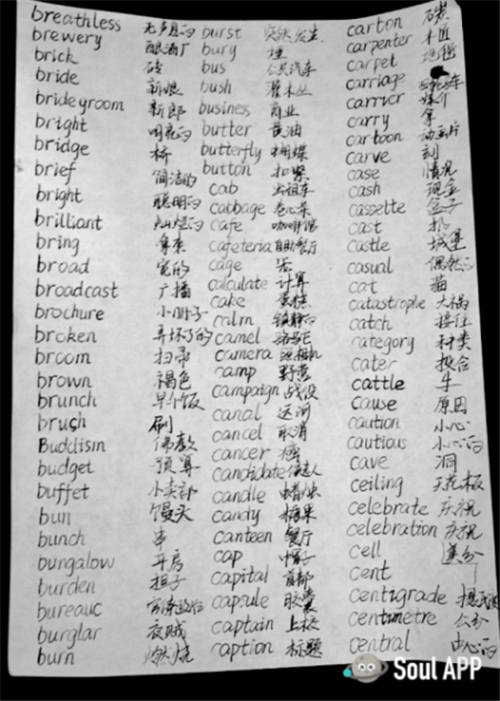 breathless 无声息的
brewery 酿酒厂
brick 砖
bride 新娘
bridegroom 新郎
bright 明亮的
bridge 桥
brief 简洁的
bright 聪明的
brilliant 灿烂的
bring 拿来
broad 宽的
broadcast 广播
brochure 小册子
broken 弄坏了的
broom 扫帚
brown 褐色
brunch 早午饭
brush 刷
Buddism 佛教
budget 预算
buffet 小卖部
bun 馒头
bunch 串
bungalow 平房
burden 担子
bureauc
burglar 夜贼
burn 燃烧
burst 突然发生
bury 埋
bus 公共汽车
bush 灌木丛
business 商业
butter 黄油
butterfly 蝴蝶
button 扣紧
cab 出租车
cabbage 卷心菜
cafe 咖啡馆
cafeteria 自助餐厅
cage 笼
calculate 计算
cake 蛋糕
calm 镇静的
camel 骆驼
camera 照相机
camp 野营
campaign 战役
canal 运河
cancel 取消
cancer 癌
candidate 候选人
candle 蜡烛
candy 糖果
canteen 餐厅
cap 帽子
capital 首都
capsule 胶囊
captain 上校
caption 标题
carton
carpenter 木匠
carpet 地毯
carriage
carrier 媒介
carry 拿
cartoon 动画片
carve 刻
case 情况
cash 现金
cassette 盒子
cast 扔
castle 城堡
casual 偶然的
cat 猫
catastrophe 大祸
catch 接住
category 种类
cater 投合
cattle 牛
cause 原因
caution 小心
cautious 小心的
cave 洞
ceiling 天花板
celebrate 庆祝
celebration 庆祝
cell
cent 美分
centigrade
centimetre 公分
central 中心的
Soul APP